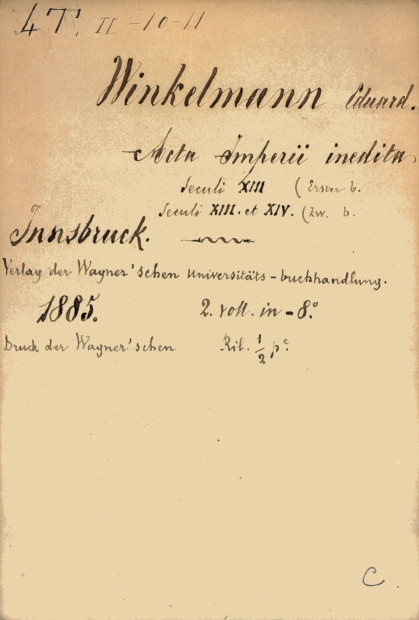 4T. II -10-11
Winkelmann Eduard.
Acta Imperii inedita,
Seculi XIII (Erster b.
Seculi XIII. et XIV. (Zw. b.
Innsbruck.
Verlag der Wagner'schen universitäts-buchhandlung.
1885. 2. voll. in-8°
Druck der Wagner'schen Ril. 1/2 pe.
C.